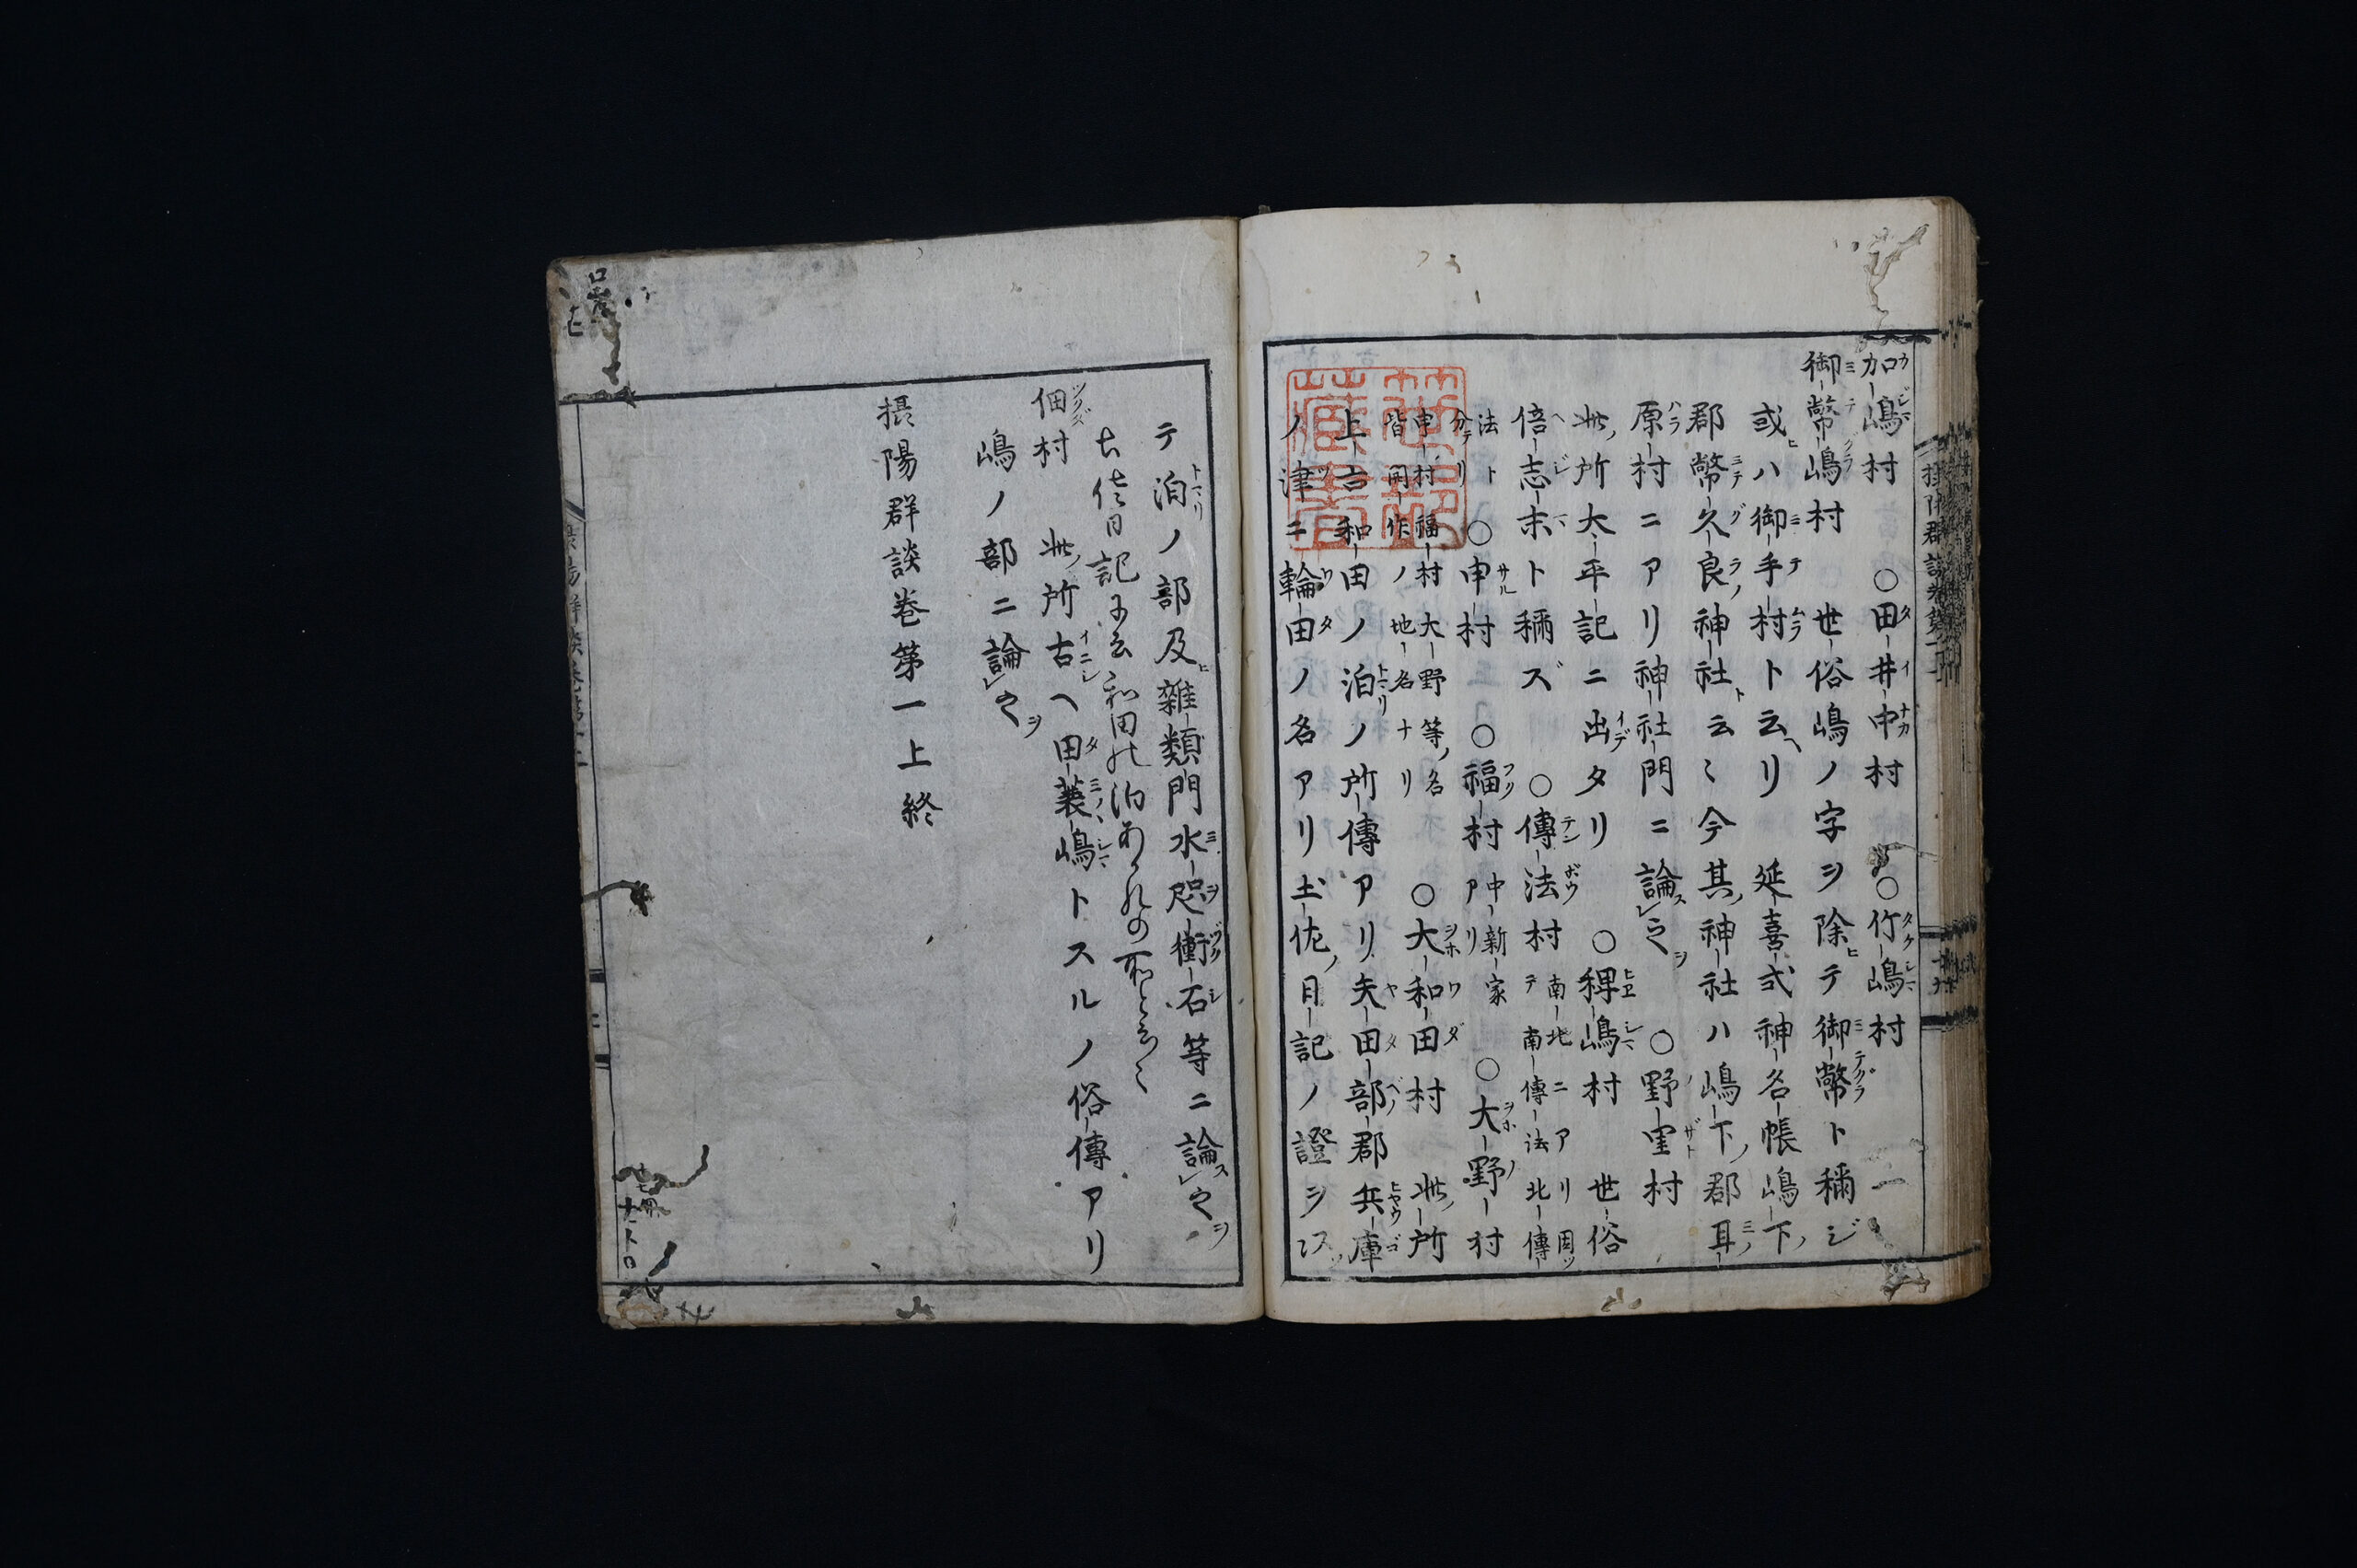 加嶋村　○田井中村　○竹嶋村
御幣嶋村　世俗嶋ノ字ヲ除テ御幣ト稱ジ
或ハ御手村ト云リ　延喜式神名帳嶋下
郡幣久良神社ト云々今其神社ハ嶋下郡耳
原村ニアリ神社門ニ論之　○野里村
此所太平記ニ出タリ　○稗嶋村　世俗
倍志末ト稱ズ　○傳法村　南北ニアリ因テ南傳法北傳
法ト分テリ　○申村　○福村　中新家アリ　○大野村
申村福村大野等ノ名皆開作ノ地名ナリ　○大和田村　此所
上古和田ノ泊ノ所傳アリ矢田部郡兵庫
ノ津ニ輪田ノ名アリ土佐日記ノ證シス
テ泊ノ部及雜類門水咫衝石等ニ論之
土佐日記に云和田の泊あかれの所と云々
佃村　此所古ヘ田蓑嶋トスルノ俗傳アリ
嶋ノ部ニ論之
摂陽群談巻第一上終